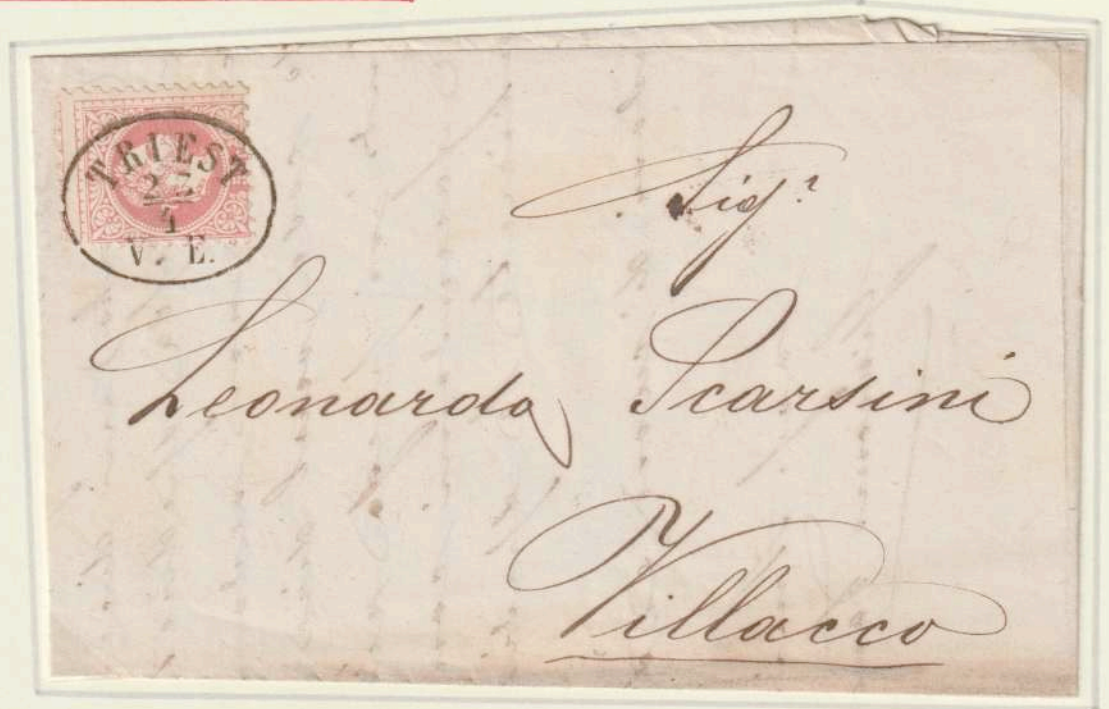 TRIEST
27
4
V. E.
Sigr
Leonardo Scarsini
Villacco